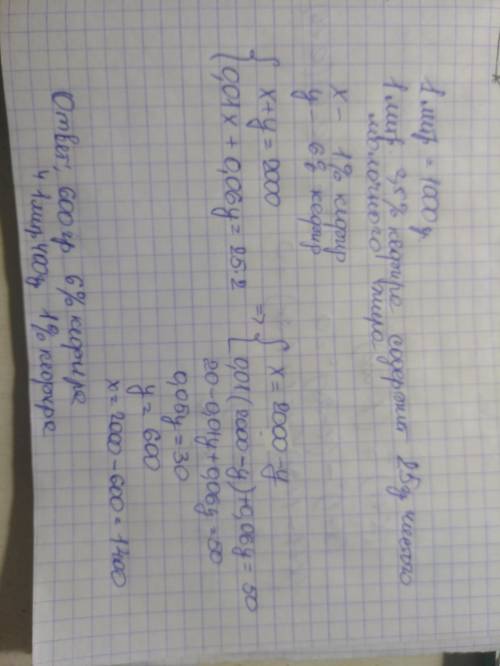 1 литр = 1000 г
1 литр 2,5% кефира содержит 25 г чистого
молочного жира.
x - 1% кефир
y - 6% кефир
{ x + y = 2000
{ 0,01x + 0,06y = 25·2
=> { x = 2000 - y
{ 0,01(2000 - y) + 0,06y = 50
20 - 0,01y + 0,06y = 50
0,05y = 30
y = 600
x = 2000 - 600 = 1400
Ответ: 600 гр 6% кефира
и 1 литр 400 г 1% кефира